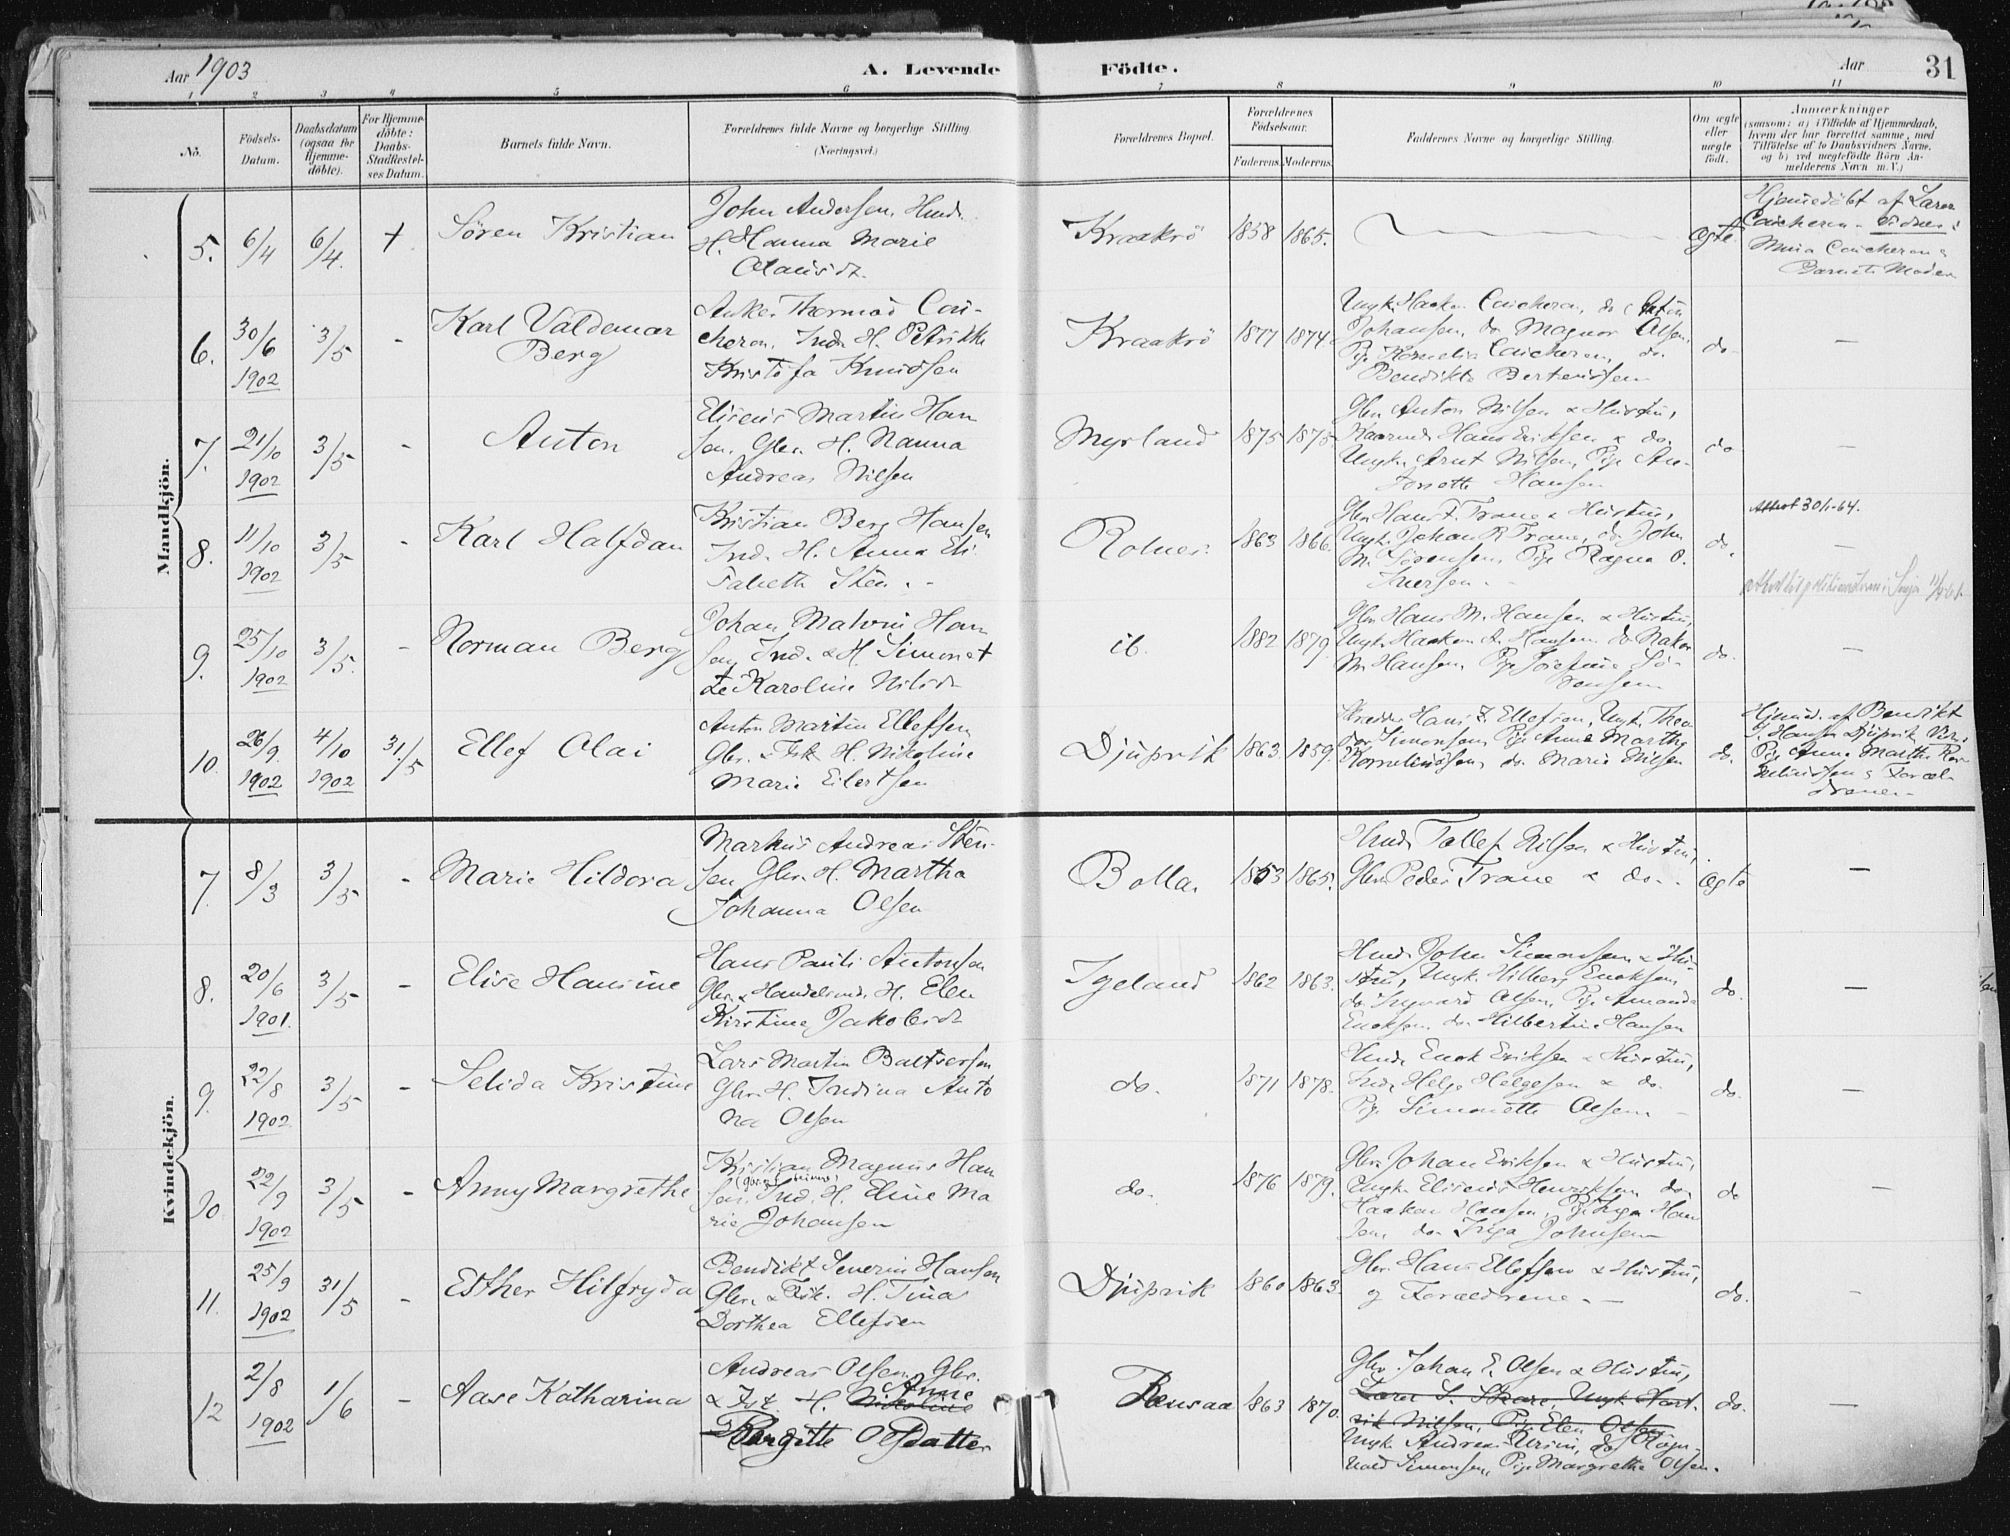 Aar 1903
A. Levende Födte.
Aar
31
1 2 3 4 5 6 7 8 9 10 11
No.
Födsels-
Datum.
Daabsdatum
(ogsaa for
Hjemme-
döbte).
For Hjemme-
döbte:
Daabs-
Stadfæstel-
ses Datum.
Barnets fulde Navn.
Forældrenes fulde Navne og borgerlige Stilling
(Næringsvei.)
Forældrenes Bopæl.
Forældrenes
Födselsaar.
Faderens. Moderens.
Faddernes Navne og borgerlige Stilling.
Om ægte
eller
uægte
født.
Anmærkninger
(saasom: a) i Tilfælde af Hjemmedaab,
hvem der har forrettet samme, med
Tilföielse af to Daabsvidners Navne.
og b) ved uægtefödte Börn An-
melderens Navn m. V.)
Mandkjön.
5. 6/4 6/4. + Sören Kristian
John Andersen, Hmd.
H. Hanna Marie
Olausdt.
Kraakrö 1858 1865. ægte
Hjemedöbt af Laren
6. 30/6 1902 3/5 - Karl Valdemar
Berg
Anker Thormod Cou-
cheron, Ind. H. Petrikke
Kristofa Knudsen
Kraakrö 1877 1874.
Johansen, do Magnor Olsen,
Pige Kornelia Coucheron, do.
Bendikte Berteussen
do. -
7. 21/10 1902 3/5 - Anton
Eliseus Martin Han
sen, Gbr. H. Nanna
Andreas Nilsen
Myrland 1875 1875
Gbr. Anton Nilsen & Hustru,
Kaarmd. Hans Eriksen & do.
Ungk. Arnt Nilsen, Pige An-
Hansen
do -
8. 11/10 1902 3/5 - Karl Halfdan
Kristian Berg Hansen
Ind. H. Anna Eli-
sabeth Sten.-
Rolnes. 1863 1866.
Ungk. Johan R Trane, do John
M. Sörensen, Pige Ragna O.
Iversen.-
do. -
Attest 30/1-64.
9. 25/10 1902 3/5. - Norman Berg
Johan Malvin Han
sen, Ind. & H. Simonet
te Karoline Nilsdt
ib. 1882 1879.
Gbr. Hans M. Hansen & Hustru,
Ungk. Haakon A. Hansen, do Hakon
M. Hansen, Pige Josefine Sö-
rensen
do. -
10. 26/9 1902 4/10 1902 31/5 Ellef Olai
Anton Martin Ellefsen
Gbr. & Fisk. H. Nikoline
Marie Eilertsen
Djupvik 1863. 1859.
Skredder Hans Z. Ellefsen, Ungk. Theo
dor Simonsen, Pige Anne Marthe
Korneliussen, do. Marie Nilsen
do.
Hjemd. af Bendikt
S. Hansen Djupvik Vidn.:
Pige Anne Marthe Kor
neliussen & Foræl-
drene.-
Kvindekjön.
7. 8/3 3/5 - Marie Hildora
Markus Andreas Sten-
sen Gbr. H. Martha
Johanna Olsen
Bolla. 1853 1865.
Hmd. Tollef Nilsen & Hustru,
Gbr. Peder Trane & do..
ægte -
8. 20/6 1901. 3/5 - Elise Hansine
Hans Pauli Antonsen
Gbr. & Handelsmd. H. Elen
Kirstine Jakobsdt
Igeland 1862 1863.
Hmd. John Simonsen & Hu-
stru, Ungk. Hilberg Enoksen,
do. Ingvard Olsen, Pige Amanda
Enoksen, do Hilbertine Hansen
do. -
9. 22/8 1902 3/5 - Selida Kristine
Lars Martin Baltsersen
Gbr. H. Indina Anto
na Olsen
do. 1871 1878.
Hmd. Enok Eriksen & Hustru,
Ind. Helge Helgesen & do.
Pige Simonette Olsen
do. -
10 22/9 1902 3/5 - Anny Margrethe
Kristian Magnus Han
sen, Ind. H. Eline Ma
rie Johansen
do. 1876 1879.
Gbr. Johan Eriksen & Hustru,
Ungk. Eliseus Henriksen, do.
Haakon Hansen, Pige Inga Han
sen, do Inga Johnsen
do -
11. 25/9 1902 31/5 - Esther Hilfryda
Bendikt Severin Hansen
Gbr. & Fisk. H. Tina
Dorthea Ellefsen
Djupvik 1860 1863.
Gbr. Hans Ellefsen & Hustru,
og Forældrene.-
do. -
12 2/8 1902 1/6 - Aase Katharina
Andreas Olsen, Gbr.
Anne
& Fisk. H. Nikoline
Bergitte Olsdatter
Rensaa 1863 1870.
Gbr. Johan E. Olsen & Hustru,
Lars S. Skare, Ungk. Hart-
vik Nilsen, Pige Elen Olsen
Ungk. Andreas Ursin, do Rögn-
vald Simonsen, Pige Margrethe Olsen.
do. -